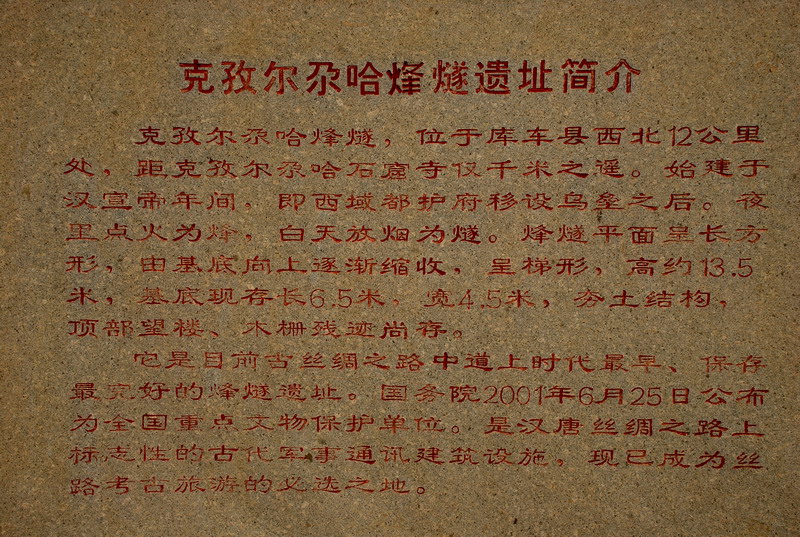 克孜尔尕哈烽燧遗址简介
克孜尔尕哈烽燧，位于库车县西北12公里
处，距克孜尔尕哈石窟寺仅千米之遥。始建于
汉宣帝年间，即西域都护府移设乌垒之后。夜
里点火为烽，白天放烟为燧。烽燧平面呈长方
形，由基底向上逐渐缩收，呈梯形，高约13.5
米，基底现存长6.5米，宽4.5米，夯土结构，
顶部望楼、木栅残迹尚存。
它是目前古丝绸之路中道上时代最早、保存
最完好的烽燧遗址。国务院2001年6月25日公布
为全国重点文物保护单位。是汉唐丝绸之路上
标志性的古代军事通讯建筑设施，现已成为丝
路考古旅游的必选之地。